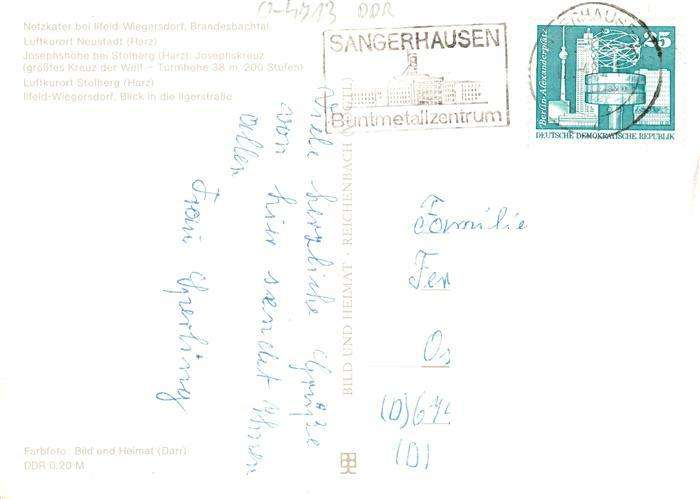 DDR
Netzkater bei Ilfeld-Wiegersdorf, Brandesbachtal
Luftkurort Neustadt (Harz)
Josephshöhe bei Stolberg (Harz): Josephskreuz
(größtes Kreuz der Welt – Turmhöhe 38 m, 200 Stufen)
Luftkurort Stolberg (Harz)
Ilfeld-Wiegersdorf, Blick in die Ilgerstraße
SANGERHAUSEN
Buntmetallzentrum
Berlin, Alexanderplatz
25
DEUTSCHE DEMOKRATISCHE REPUBLIK
Viele herzliche Grüße
von hier sendet Ihnen
allen
Frau Sperling
BILD UND HEIMAT · REICHENBACH
Familie
Fer
Os
(D)
(D)
Farbfoto: Bild und Heimat (Darr)
DDR 0,20 M